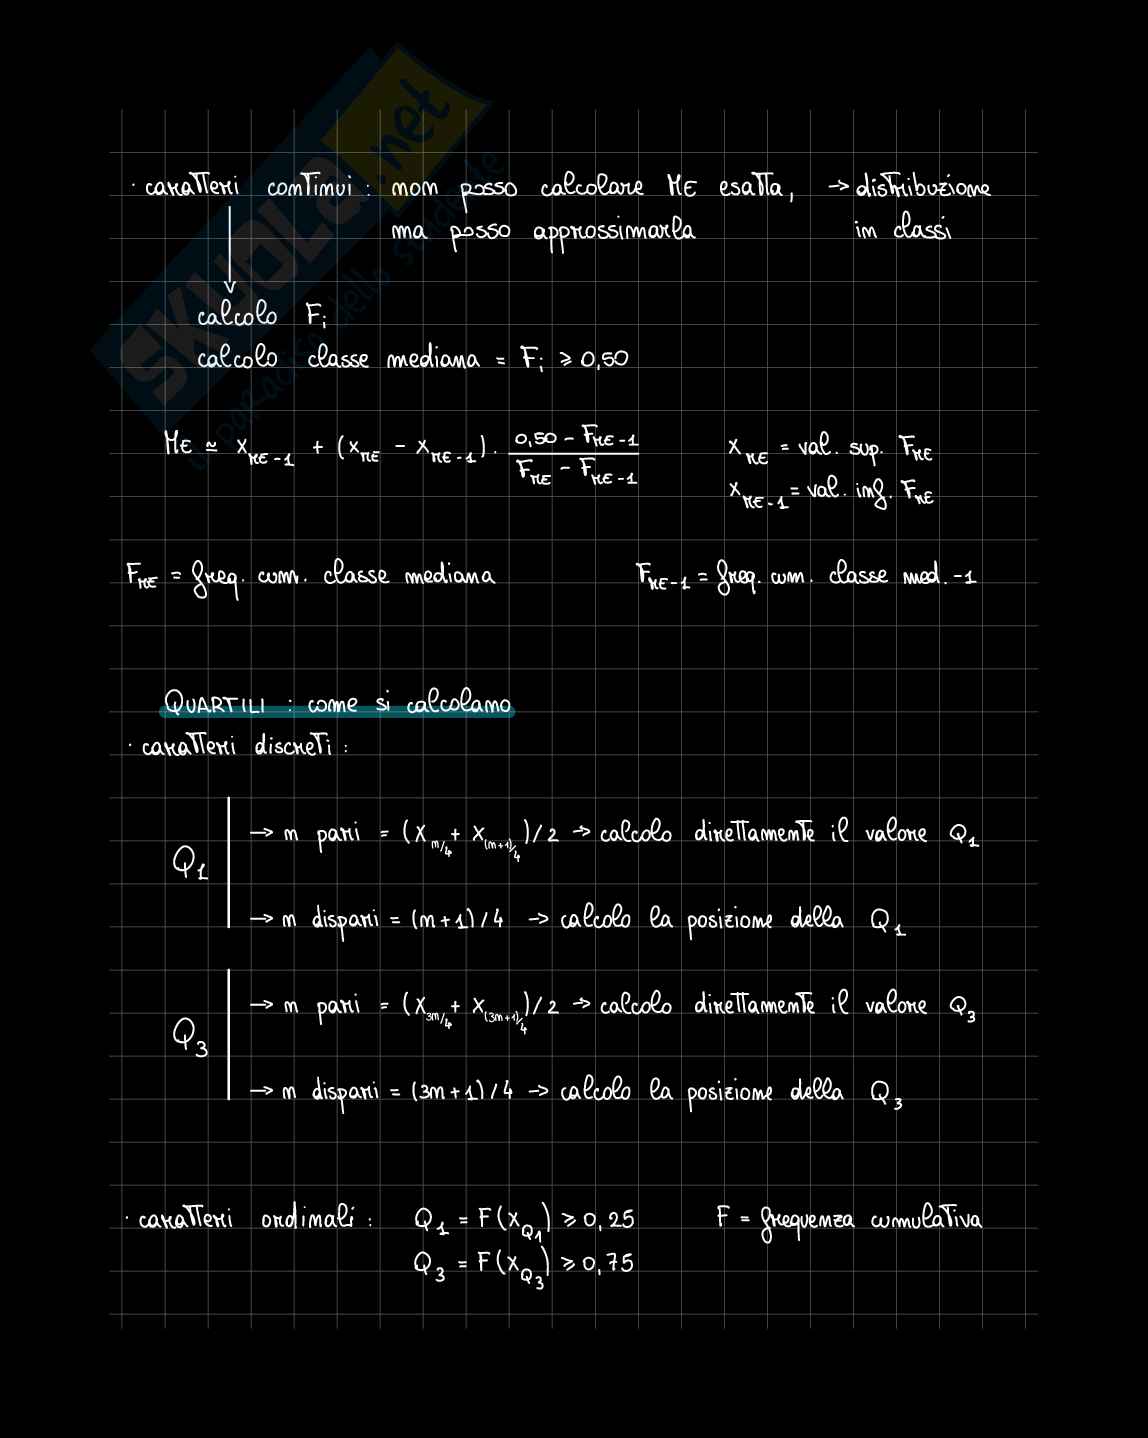 SKUOLA.net
il paradiso dello studente
· caratteri continui : non posso calcolare ME esatta, → distribuzione
ma posso approssimarla in classi
calcolo Fi
calcolo classe mediana = Fi ⩾ 0,50
ME ≃ x_ME-1 + (x_ME - x_ME-1) · (0,50 - F_ME-1) / (F_ME - F_ME-1) x_ME = val. sup. F_ME
x_ME-1 = val. inf. F_ME
F_ME = freq. cum. classe mediana F_ME-1 = freq. cum. classe med. -1
QUARTILI : come si calcolano
· caratteri discreti :
Q1
→ n pari = (x_n/4 + x_(n+1)/4)/2 → calcolo direttamente il valore Q1
→ n dispari = (n+1)/4 → calcolo la posizione della Q1
Q3
→ n pari = (x_3n/4 + x_(3n+1)/4)/2 → calcolo direttamente il valore Q3
→ n dispari = (3n+1)/4 → calcolo la posizione della Q3
· caratteri ordinali : Q1 = F(x_Q1) ⩾ 0,25 F = frequenza cumulativa
Q3 = F(x_Q3) ⩾ 0,75